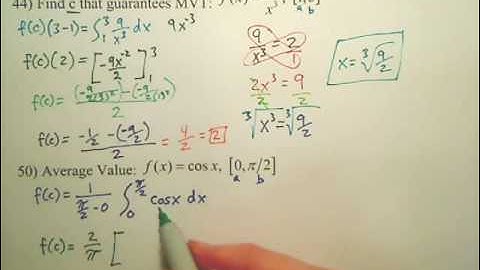 44) Find c that guarantees MVT: f(x)
a b
f(c)(3-1) = ∫₁³ 9/x³ dx 9x⁻³
f(c)(2) = [-9x⁻²/2]₁³
f(c) = 2
f(c) = (-1/2 - (-9/2))/2 = 4/2 = 2
9/x³ = 2/1
2x³/2 = 9/2
∛x³ = ∛9/2
x = ∛9/2
50) Average Value: f(x) = cos x, [0, π/2]
a b
f(c) = 1/(π/2 - 0) ∫₀^π/2 cosx dx
f(c) = 2/π [